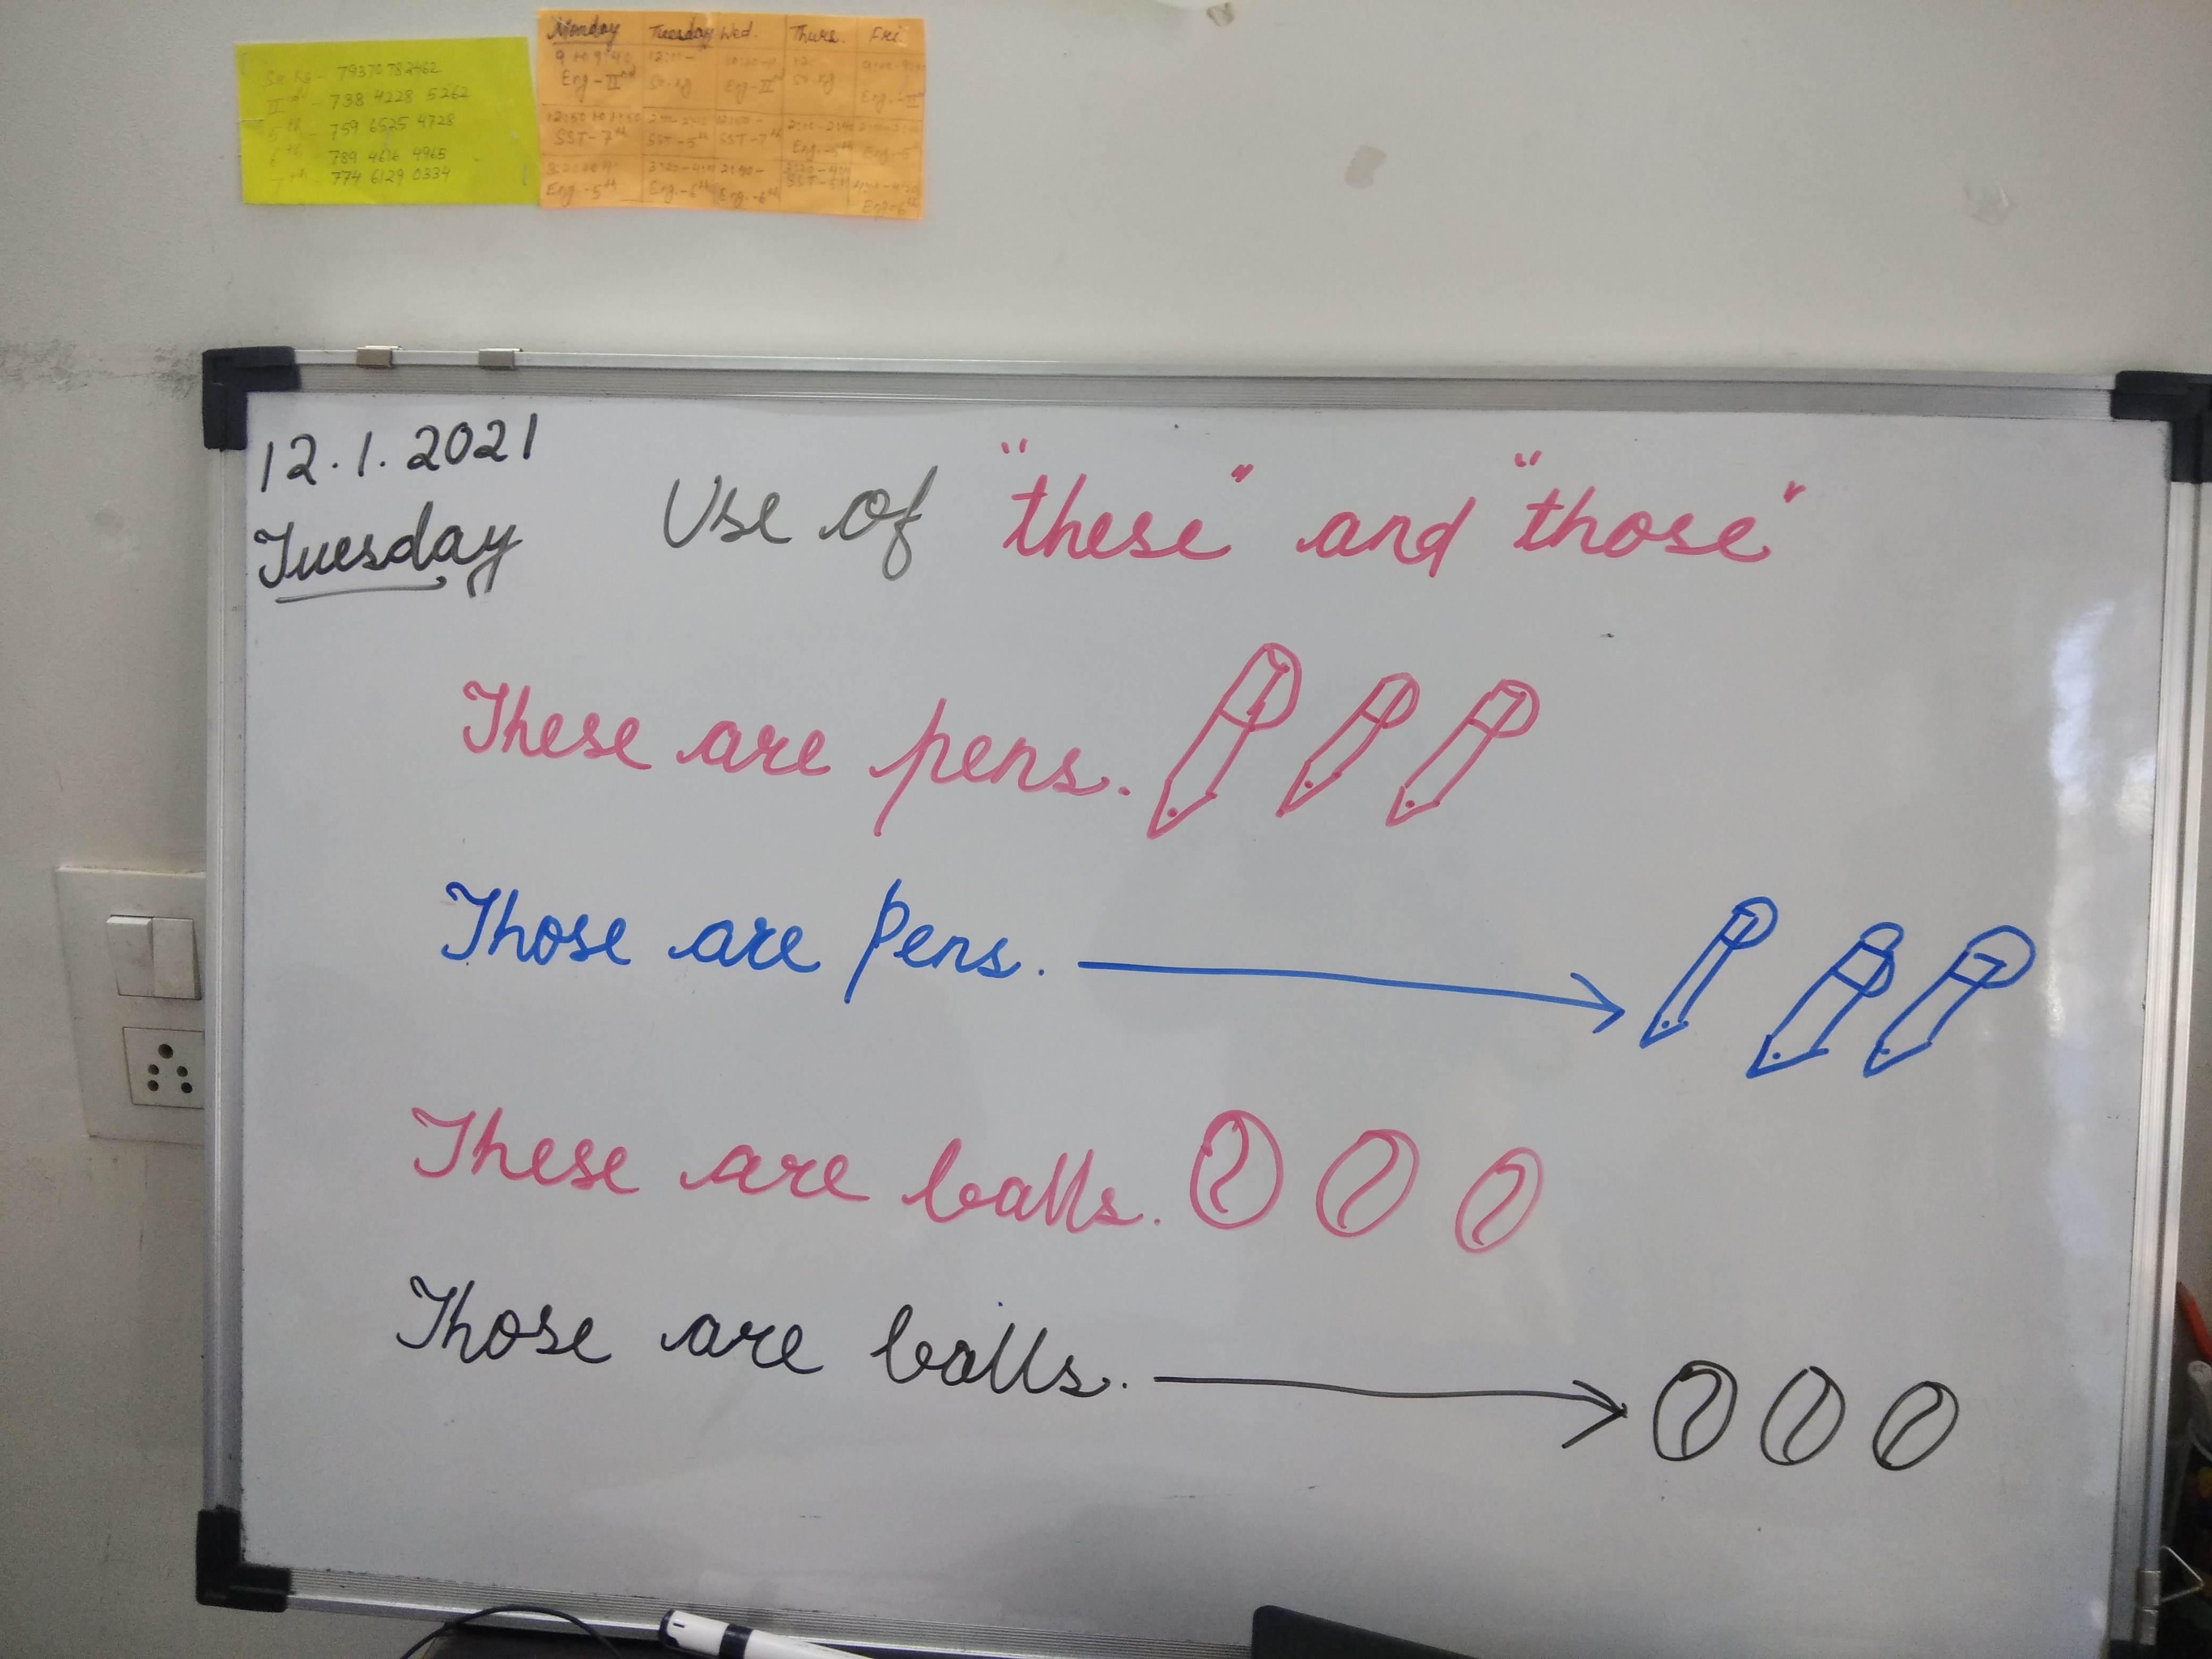 Sr. Kg - 79370782462
IIIrd - 738 4228 5262
5th - 759 6525 4728
6th - 789 4616 4965
7th - 774 6129 0334
Monday Tuesday Wed. Thurs. Fri.
9 to 9:40 12:00- 12
Eng-IInd Sr. Kg Eng-IInd Sr. Kg Eng.-IInd
SST-7th SST-5th SST-7th Eng.-5th Eng-5th
Eng.-5th Eng.-6th Eng.-6th SST-5th Eng-6th
12.1.2021
Tuesday
Use of "these" and "those"
These are pens.
Those are pens.
These are balls.
Those are balls.